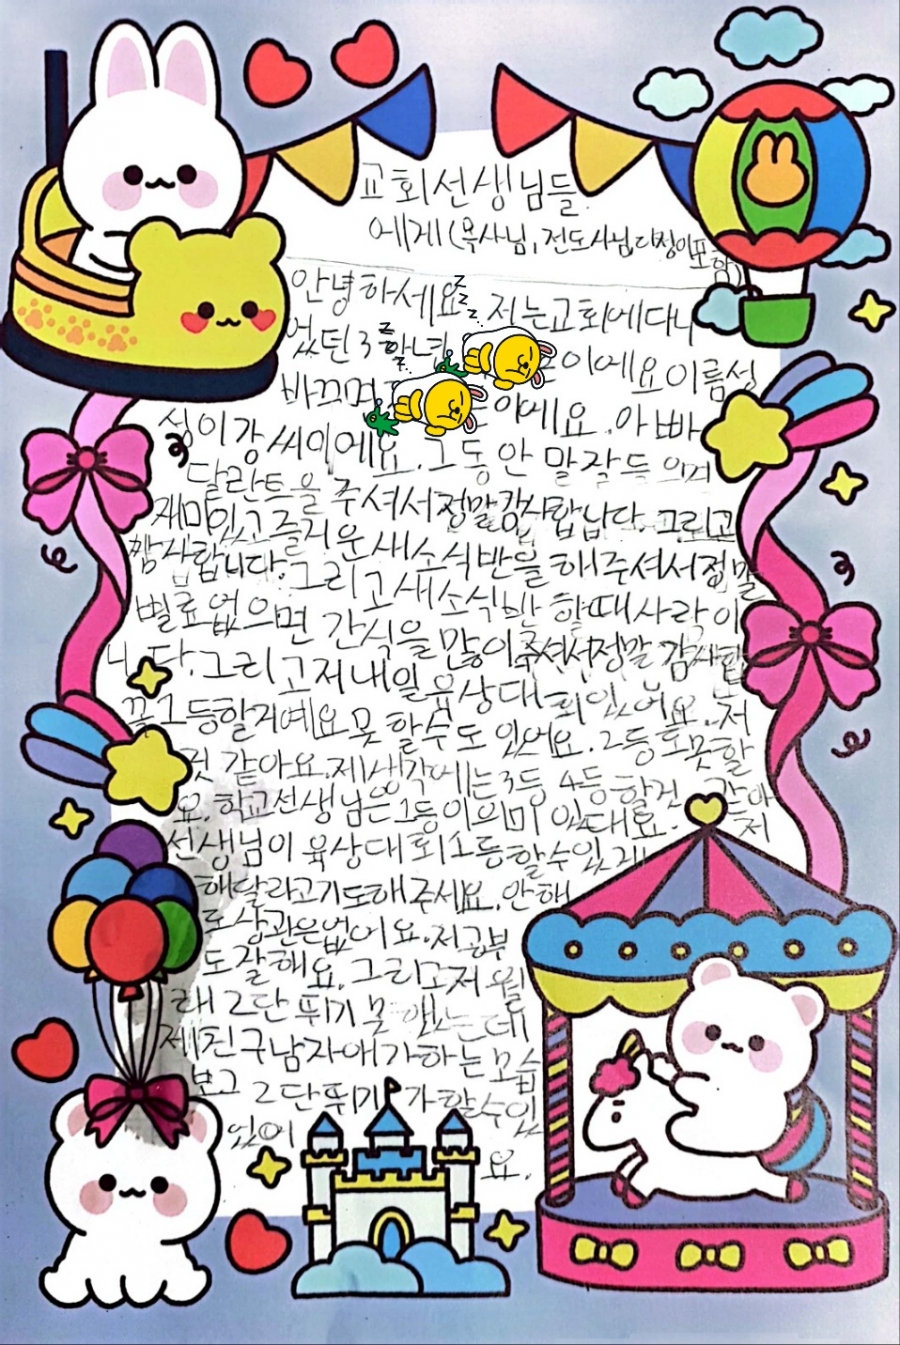 교회선생님들
에게(목사님,전도사님다정이포함)
안녕하세요 저는교회에다니
었던 3학년 이에요 이름성
바끄며 이에요. 아빠
성이강씨이에요. 그동안 말잘듣
달란트을 주셔서정말감사합니다. 그리고
재미있고즐거운새소식반을해주셔서정말
감사합니다.그리고새소식반 할때사람이
별로없으면 간식을많이주셔서정말 감사합
니다.그리고저내일육상대회있어요.저
꼭1등할거예요못할수도있어요.2등도못할
것 같아요.제생각에는3등 4등할건 같아
요.학교선생님은1등이의미있대요. 저
선생님이 육상대회1등할수있게
해달라고기도해주세요.안해
도상관은없어요.저공부
도잘해요.그리고저 원
래 2단뛰기 못했는데
제친구남자애가하는모습
보고 2단뛰기가할수있
있어
요.